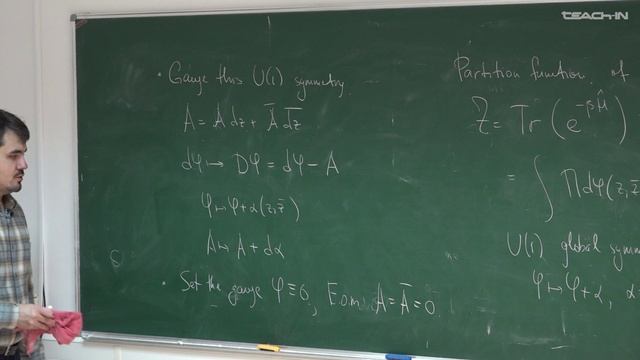 TEACH-IN
• Gauge this U(1) symmetry.
A = A dz + A̅ d̅z̅
dφ ↦ Dφ = dφ − A
φ ↦ φ + α(z, z̅)
A ↦ A + dα
• Set the gauge φ ≡ 0, E.o.m. A = A̅ = 0
Partition function of
Z = Tr (e^{-βĤ})
= ∫ ∏ dφ(z, z̅
U(1) global symm
φ ↦ φ + α, α =